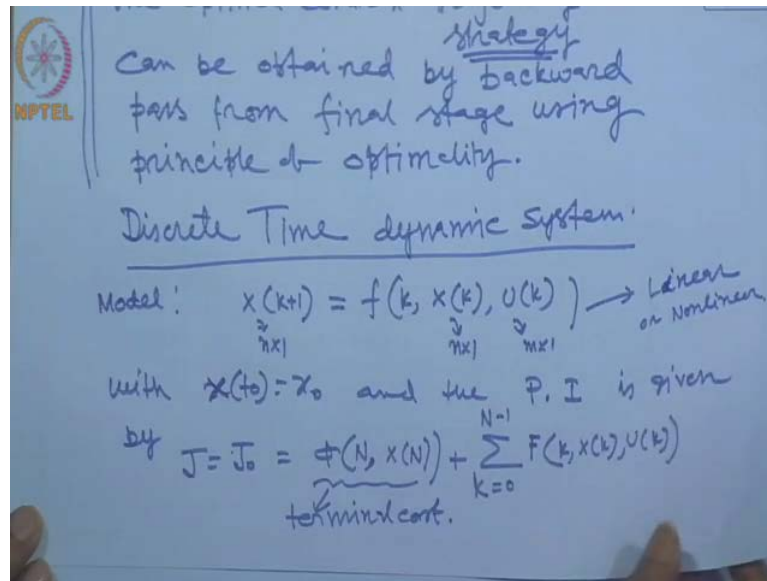 strategy
Can be obtained by backward
pass from final stage using
principle of optimality.
NPTEL
Discrete Time dynamic system:
Model: x(k+1) = f(k, x(k), U(k)) → Linear
or Nonlinear
n×1 n×1 m×1
with x(t0)=x0 and the P.I is given
by J = J0 = Φ(N, x(N)) + ∑ F(k, x(k), U(k))
N-1
k=0
terminal cost.